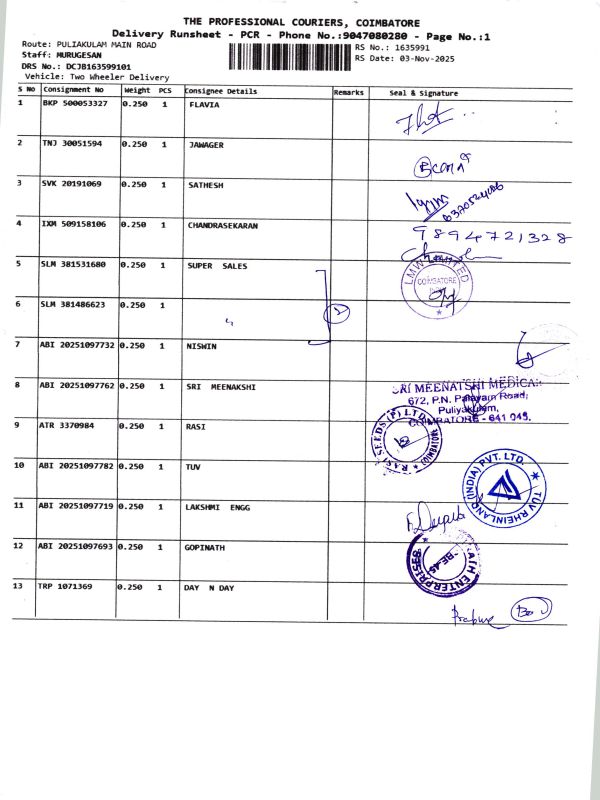 THE PROFESSIONAL COURIERS, COIMBATORE
Delivery Runsheet - PCR - Phone No.:9047080280 - Page No.:1
Route: PULIAKULAM MAIN ROAD
RS No.: 1635991
Staff: MURUGESAN
RS Date: 03-Nov-2025
DRS No.: DCJB163599101
Vehicle: Two Wheeler Delivery
S No Consignment No Weight PCS Consignee Details Remarks Seal & Signature
1 BKP 500053327 0.250 1 FLAVIA
2 TNJ 30051594 0.250 1 JAWAGER
3 SVK 20191069 0.250 1 SATHESH
4 IXM 509158106 0.250 1 CHANDRASEKARAN 9894721328
5 SLM 381531680 0.250 1 SUPER SALES
LMW LIMITED
COIMBATORE
6 SLM 381486623 0.250 1 〃 2
7 ABI 20251097732 0.250 1 NISWIN
8 ABI 20251097762 0.250 1 SRI MEENAKSHI
SRI MEENATSHI MEDICAL
672, P.N. Palayam Road,
Puliyakulam,
COIMBATORE - 641 045.
9 ATR 3370984 0.250 1 RASI
RASI SEEDS (P) LTD.
10 ABI 20251097782 0.250 1 TUV
TUV RHEINLAND (INDIA) PVT. LTD.
11 ABI 20251097719 0.250 1 LAKSHMI ENGG
12 ABI 20251097693 0.250 1 GOPINATH
ENTERPRISES
13 TRP 1071369 0.250 1 DAY N DAY